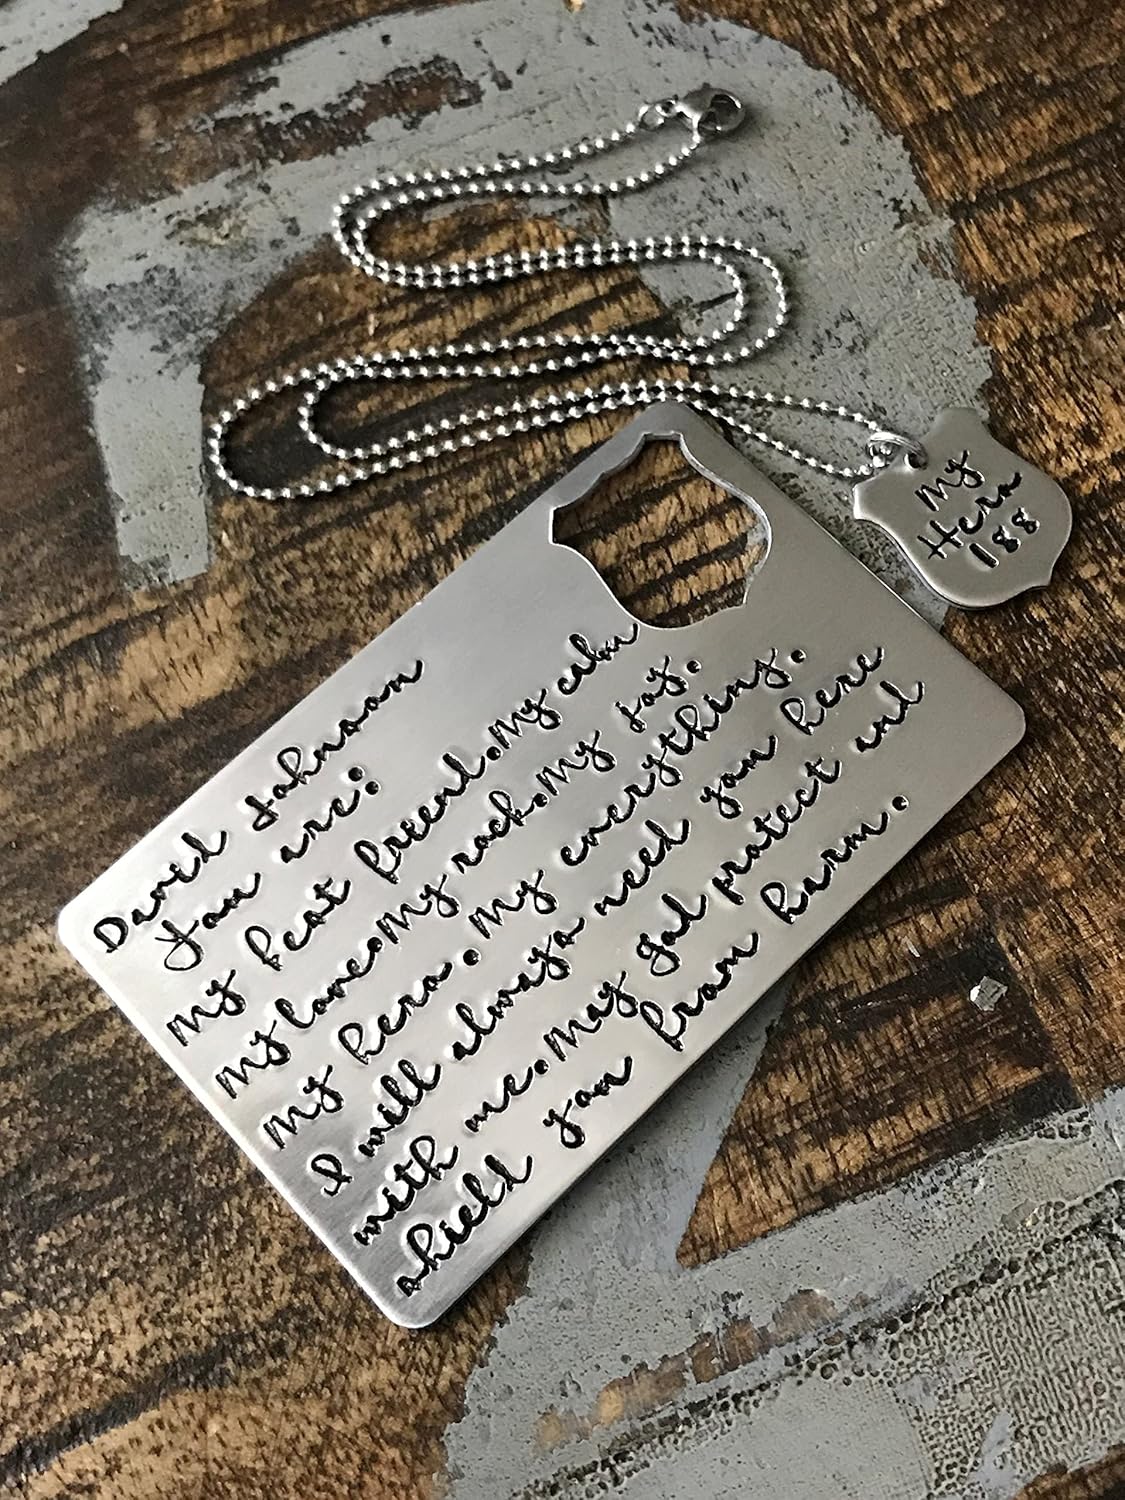 My
Hero
188
David Johnson
You are:
My best freend.My calm
My love.My rock.My joy.
My hero.My everything.
I will always need you here
with me.May god protect and
shield you from harm.